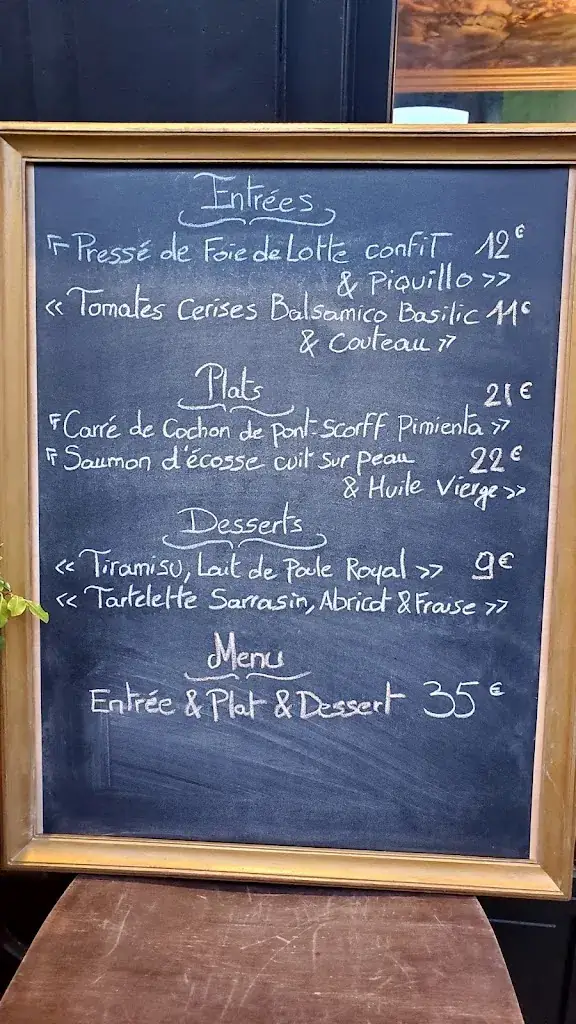 Entrées
« Pressé de Foie de Lotte confit 12€
& Piquillo »
« Tomates Cerises Balsamico Basilic 11€
& Couteau »
Plats
21€
« Carré de Cochon de Pont-Scorff Pimienta »
« Saumon d'écosse cuit sur peau 22€
& Huile Vierge »
Desserts
« Tiramisu, Lait de Poule Royal » 9€
« Tartelette Sarrasin, Abricot & Fraise »
Menu
Entrée & Plat & Dessert 35€